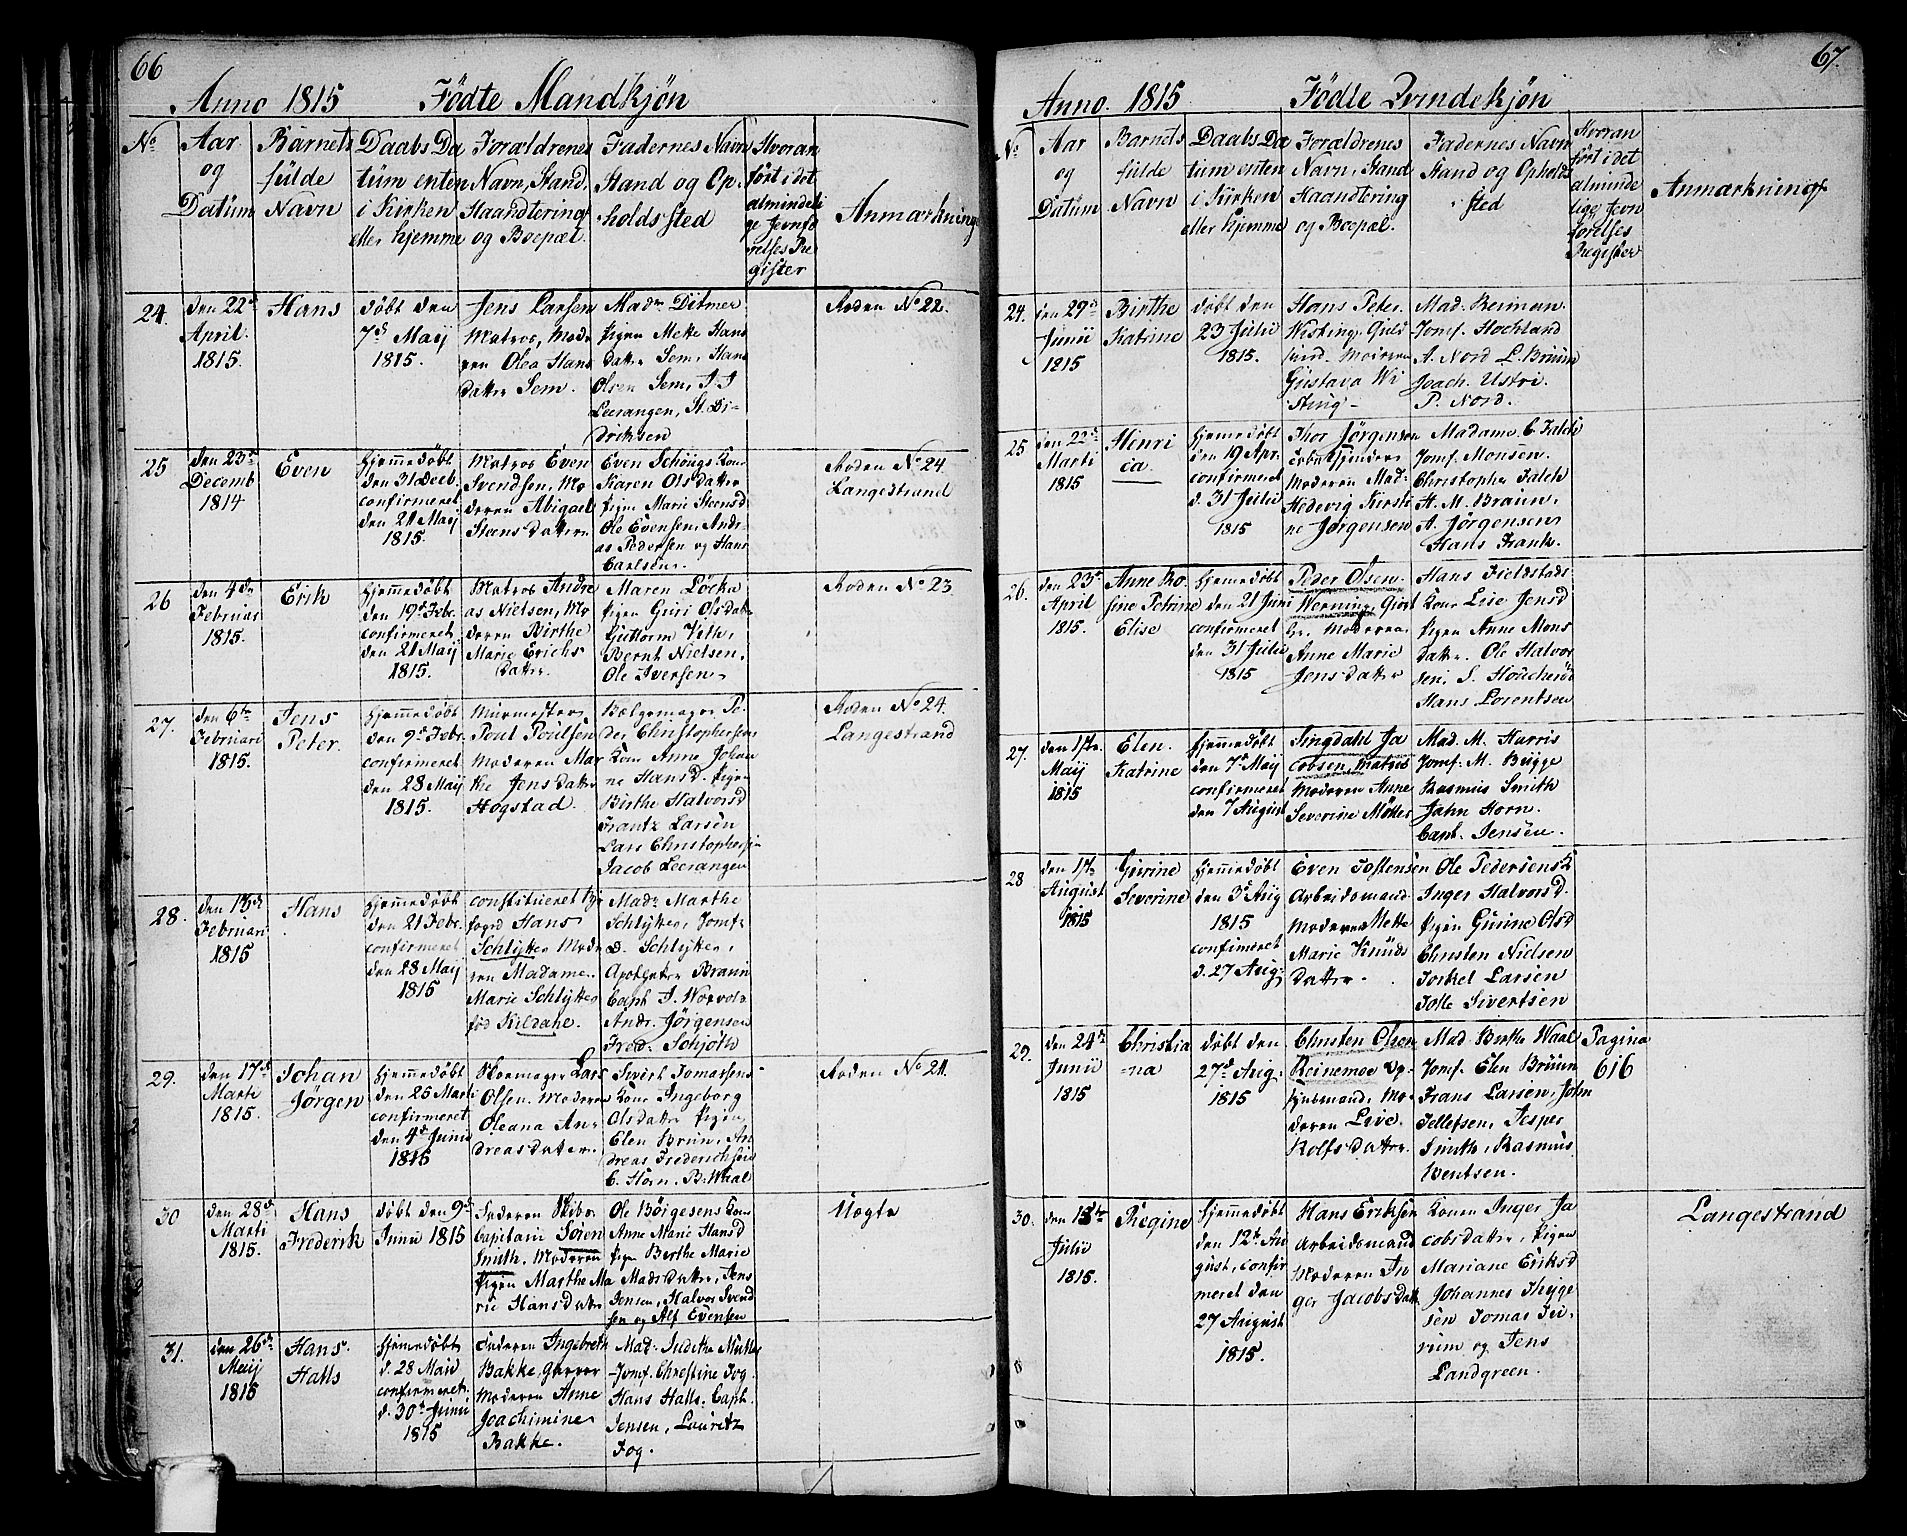 66
Anno 1815 Fødte Mandkjøn
No
Aar
og
Datum
Barnets
fulde
Navn
Daabs Da
tum enten
i Kirken
eller hjemme
Forældrenes
Navn, Stand,
Haandtering
og Boepæl.
Fadernes Navn
Stand og Op.
holds sted
Hvoran
ført i det
almindeli
ge Jevnfø
relses Re
gister
Anmærkning
24.
den 22de
April.
1815.
Hans
døbt den
7de Maij
1815.
Jens Larsen
Matros, Mod
ren Olea Hans
Datter Sem.
Madm Ditmer
Pigen Mette Hans
Datter Sem, Hans
Olsen Sem, J. J
Leerangen, St. Di-
driksen
Roden No 22.
25
den 23de
Decemb
1814
Even
hjemmedøbt
den 31 Decb.
confirmeret
den 21 Maij
1815.
Matros Even
Svendsen, Mo
deren Abigael
Steens Datter
Even Schougs Kone
Karen Olsdatter
Pigen Marie Steensd
Ole Evensen, Andr-
as Pedersen og Hans
Carlsen.
Roden No 24.
Langestrand
26
den 4de
Februar
1815.
Erik
hjemmedøbt
den 19de Febr.
confirmeret
den 21 Maij
1815.
Matros Andre
as Nielsen, Mo
deren Birthe
Marie Erichs
Datter.
Maren Löcke
Pigen Guri Olsdat
Guttorm Vith,
Bernt Nielsen,
Ole Iversen
Roden No 23.
27.
den 6te
Februari
1815.
Jens
Peter.
hjemmedøbt
den 9de Febr.
confirmeret
den 28 Maij
1815.
Murmester
Poul Poulsen
Moderen Mar
the Jens Datter
Hogstad.
Bælgemager Pe-
der Christophersens
Kone Anne Johan
ne Hansd. Pigen
Birthe Halvorsd
Frantz Larsen
Lars Christophersen
Jacob Leerangen
Roden No 24.
Langestrand
28.
den 13de
Februari
1815
Hans
hjemmedøbt
den 21 Febr.
confirmeret
den 28 Maij
1815
constitueret By
foged Hans
Schlytter Mode
ren Madame
Marie Schlytter
fød Kildahl.
Madm Marthe
Schlytter, Jomf.
D. Schlytter,
Apotheker Bruun
Capt J.
Andr. Jörgensen
Fred: Schjøth
29.
den 17de
Marti
1815.
Johan
Jörgen
hjemmedøbt
den 25 Marti
confirmeret
den 4de Junii
1815
Skomager Lars
Olsen. Moderen
Oleana An-
dreasdatter.
Sivert Tomassens
Kone Ingeborg
Olsdatter Pigen
Elen Brun, An
dreas Friderichsen
C. Horn. B. Waal
Roden No 21.
30
den 28de
Marti
1815.
Hans
Frederik
døbt den 9de
Junii 1815
Faderen Skibs
Capitain Søren
Smith. Moderen
Pigen Marthe Ma
rie Hansdatter
Ole Börgesens Kone
Anne Marie Hansd
Pigen Berthe Marie
Madsdatter, Jens
Jensen, Halvor Svend
sen og Alf Evensen
Uægte
31.
den 26de
Maij
1815
Hans
Halls
hjemmedøbt
d. 28 Maii
confirmeret
d. 30te Junii
1815
Faderen Ingebreth
Bakke,
Moderen Anne
Joachimine
Bakke.
Mad. Judithe Müller
Jomf. Chrestine Fog.
Hans Halls. Capt.
Jensen, Lauritz
Fog.
67.
Anno. 1815 Fødte Qvindekjøn
No
Aar
og
Datum
Barnets
fulde
Navn
Daabs Da
tum enten
i Kirken
eller hjemme
Forældrenes
Navn, Stand
Haandtering
og Boepæl.
Fadernes Navn
Stand og Opholds
sted
Hvoran
ført i det
alminde
lige Jevn
førelses
Register
Anmærkning
24.
den 29de
Junii
1815
Birthe
Katrine
døbt den
23 Julii
1815.
Hans Peter
Wisting, Guld
smed. Moderen
Gustava Wi
sting
Mad. Berman
Jomf. Hochland
A. Nord L. Bruun
Joach. Ustri.
P. Nord.
25
den 22de
Marti
1815
Henri
ca
hjemmedøbt
den 19 Apr.
confirmeret
d. 31 Julii
1815
Thor Jörgensen
Moderen Mad:
Hedevig Kirsti
ne Jørgensen
Madame C. Falch
Jomf. Monsen.
Christopher Falch
H. M. Bruun,
A. Jörgensen
Hans Frank.
26.
den 23de
April
1815.
Anne Ro
sine Petrine
Elise
hjemmedøbt
den 21 Juni
confirmeret
den 31 Julii
1815
Peder Olsen
Werning, Giest
. Moderen
Anne Marie
Jensdatter
Hans Fieldstads
Kone Lise Jensd
Pigen Anne Mons
Datter. Ole Halvor
sen, S.
Hans Lorentsen
27.
den 1ste
Maij
1815
Elen.
Katrine
hjemmedøbt
den 7de Maij
confirmeret
den 7 August
Singdahl Ja
cobsen, Matros
Moderen Anne
Severine Möller
Mad. M. Harris
Jomf. M. Bugge
Rasmus Smith
John Horn.
Capt. Jensen.
28
den 1ste
August
1815
Gurine
Severine
hjemmedøbt
den 3de Aug
1815
confirmeret
d. 27 Aug:
Even Tostensen
Arbeidsmand
Moderen Mette
Marie Knuds
Datter
Ole Pedersens K
Inger Halvorsd.
Pigen Gurine Olsd
Christen Nielsen
Torkel Larsen
Tolle Sivertsen
29.
den 24de
Junii
1815
Christia
=na
døbt den
27de Aug:
1815
Christen Olsen
Reinemoe Op
synsmand, Mo
deren Live
Rolfsdatter.
Mad Berthe Waal
Jomf. Elen Bruun
Frans Larsen, John
Tellefsen, Jesper
Smith, Rasmus
Bentsen.
Pagina
616
30.
den 13de
Julii
1815.
Regine
hjemmedøbt
den 12te Au
gust, confir
meret den
27 August
1815.
Hans Eriksen
Arbeidsmand
Moderen In
ger Jacobsdatt
Konen Inger Ja
cobsdatter, Pigen
Mariane Eriksd
Johannes Thyge
sen Tomas Ju-
rum og Jens
Landgreen.
Langestrand